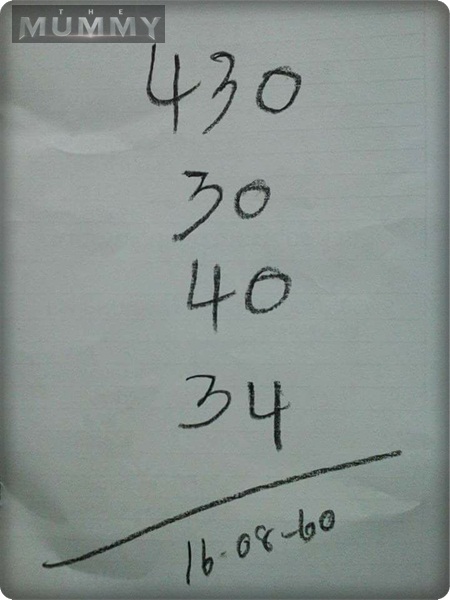 THE
MUMMY
430
30
40
34
16-08-60